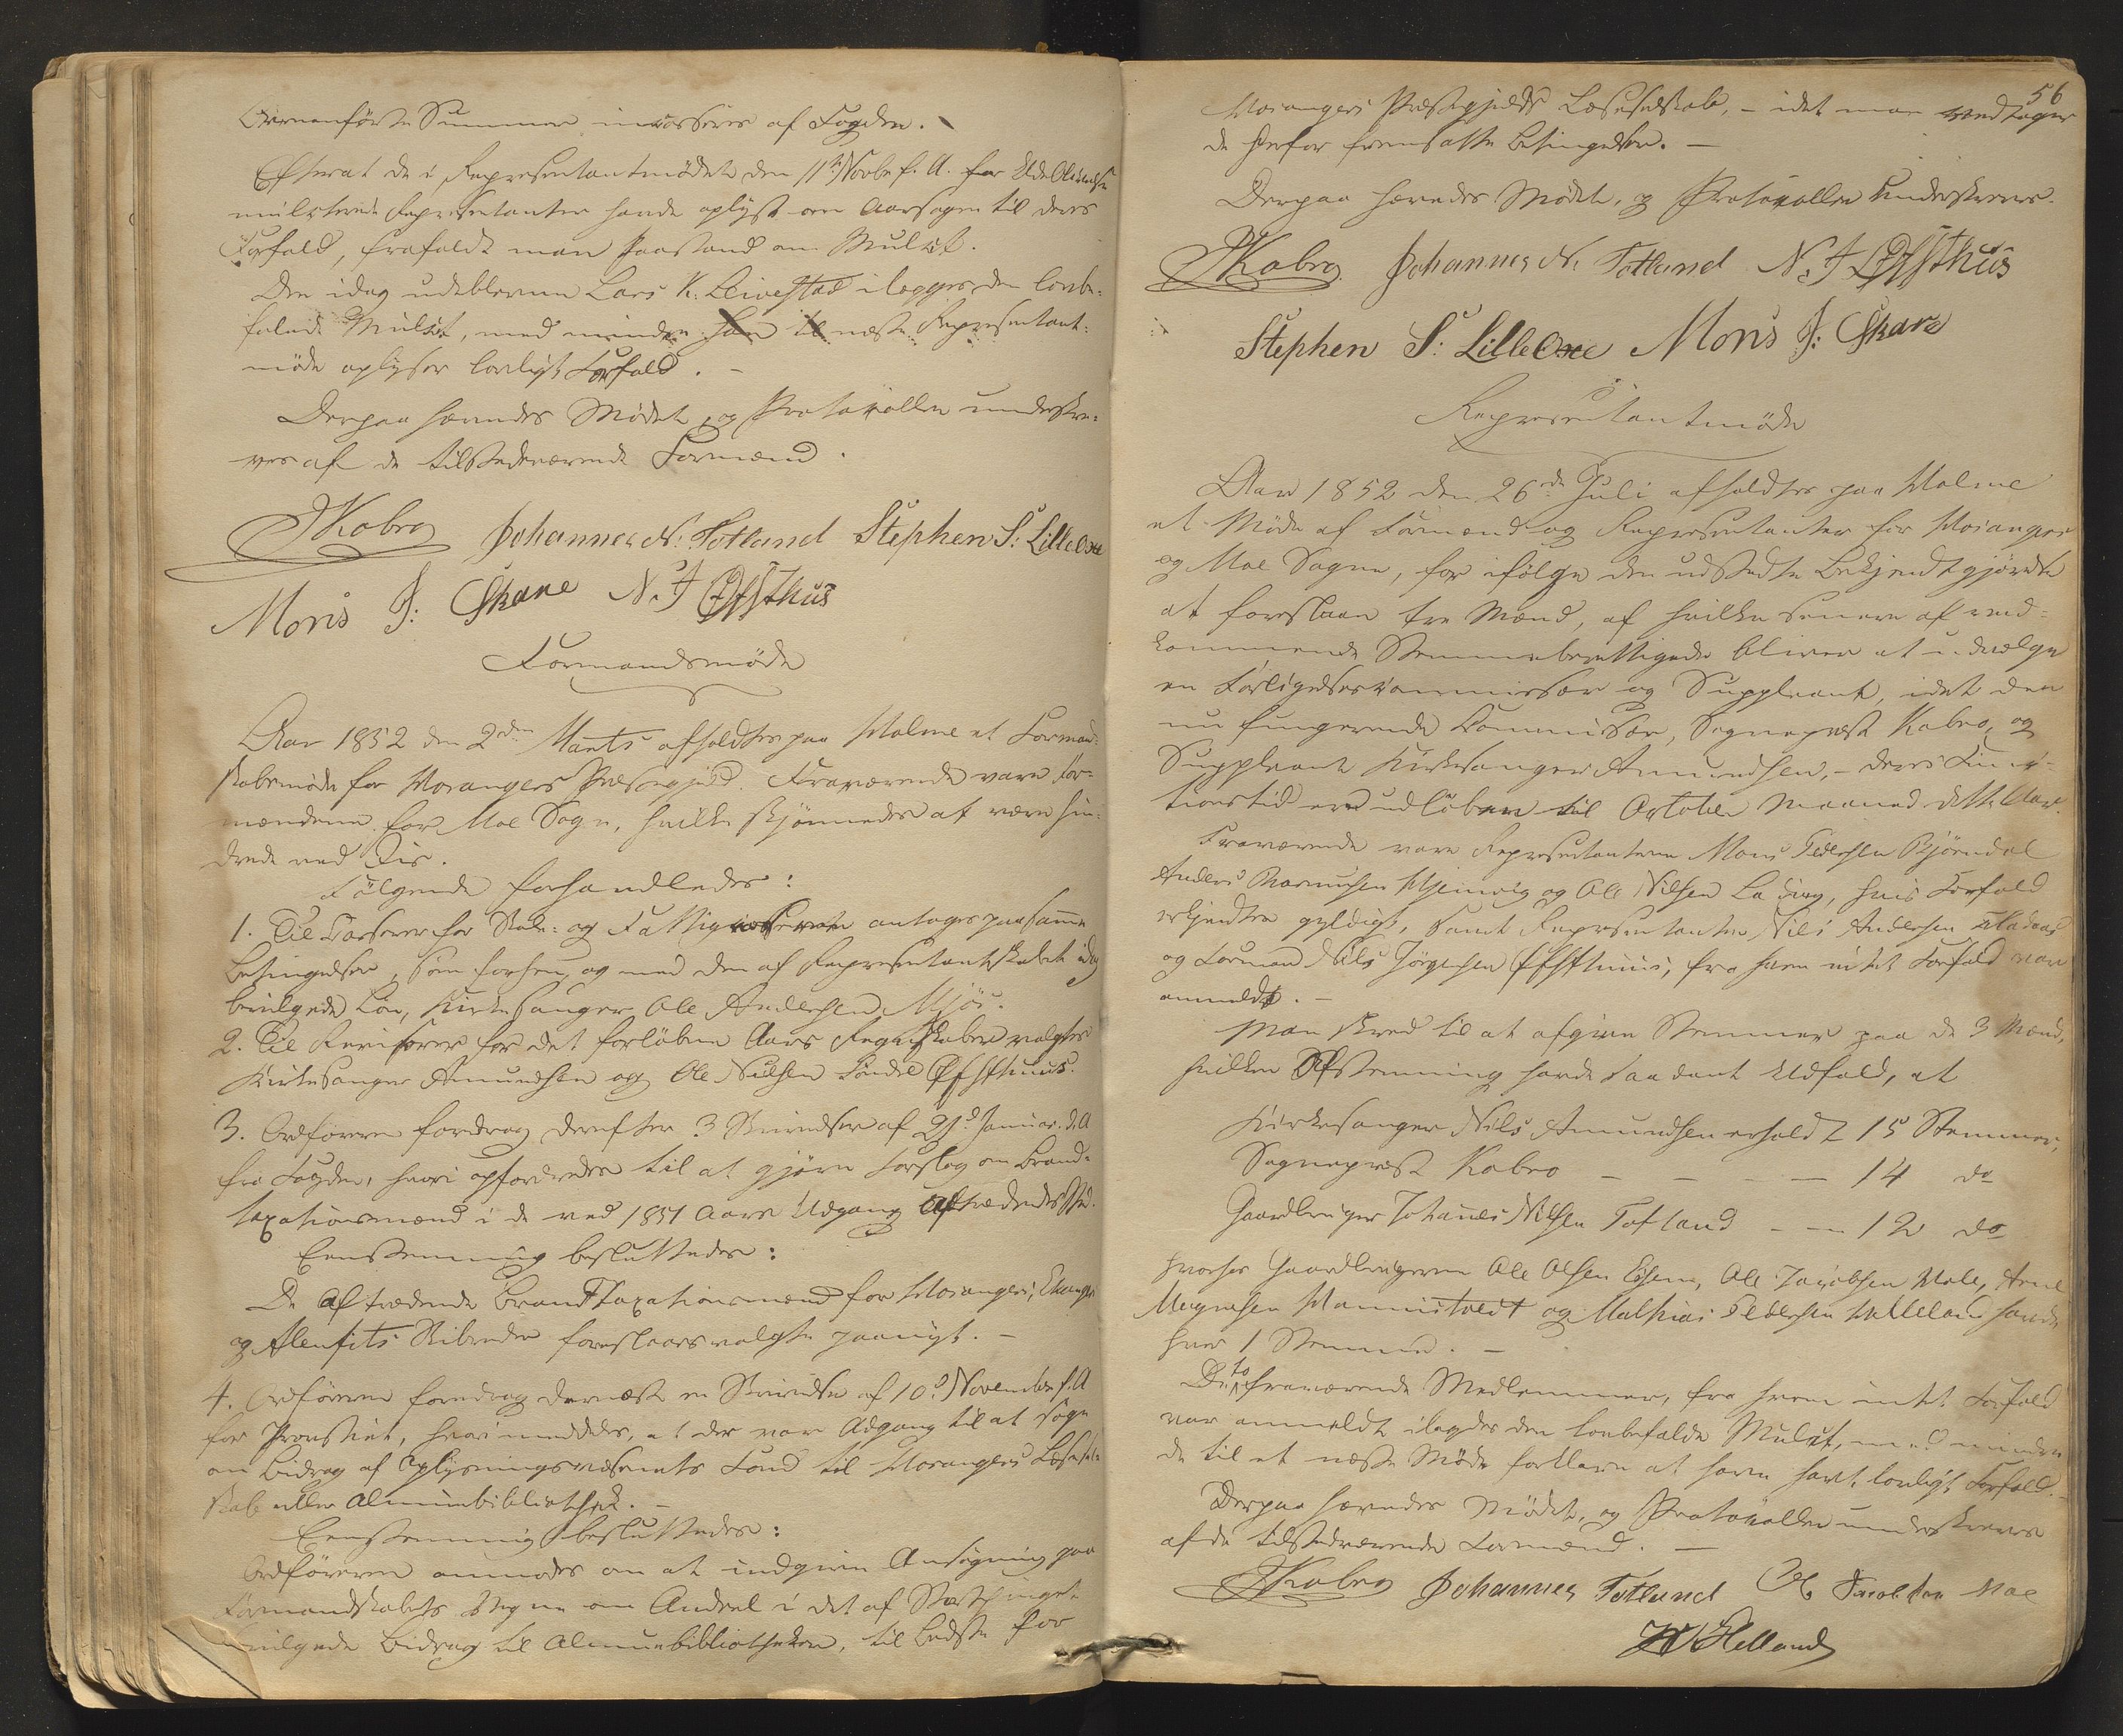 Ovenanførte Summer incasseres af Fogden.
Efterat de i Repræsentantmødet den 11te Novbr f. A. for Udeblivelse
mulcterede Repræsentanter havde oplyst om Aarsagen til deres
Forfald, frafaldt man Paastand om Mulct.
Den idag udeblevne Lars K. Leivestad ilægges den lovbe-
falede Mulct, med mindre han til næste Repræsentant-
møde oplyser lovligt Forfald. –
Derpaa hævedes Mødet, og Protokollen underskre-
ves af de tilstedeværende Formænd.
JKobro Johannes N: Totland Stephen S: LilleOxe
Mons J: Skare N. J Øfsthus
Formandsmøde
Aar 1852 den 2den Marts afholdtes paa Holme et Formand-
skabsmøde for Mangers Præstegjeld. Fraværende vare For-
mændene for Boe Sogn, hvilke skjønnedes at være hin-
drede ved Iis.
Følgende forhandledes:
1. Til Casserer for Skole- og Fattigcasserne antoges paa samme
Betingelser, som forhen, og med den af Repræsentantskabet idag
bevilgede Løn, Kirkesanger Ole Andersen Mjøs.
2. Til Revisorer for det forløbne Aars Regnskaber valgtes
Kirkesanger Amundsen og Ole Nilsen Søndre Øfsthuus.
3. Ordføreren foredrog derefter 3 Skrivelser af 21d Januar d. A
fra Fogden, hvori opfordredes til at gjøre Forslag om Brand-
taxationsmænd i de ved 1851 Aars Udgang aftrædendes Sted.
Eenstemmig besluttedes:
De aftrædende Brandtaxationsmænd for Mangers,
og Alenfits Skibreder foreslaaes valgte paanyt. –
4. Ordføreren foredrog dernæst en Skrivelse af 10d November f. A
fra Provstiet, hvori meddeles, at der var Adgang til at søge
om Bidrag af Oplysningsvæsenets Fond til Mangers Læsesel-
skab eller Almuebibliothek. –
Eenstemmig besluttedes:
Ordføreren anmodes om at indgive Ansøgning paa
Formandskabets Vegne om Andeel i det af Storthinget
bevilgede Bidrag til Almuebibliotheker, til Bedste for
56
Mangers Præstegjelds Læseselskab, – idet man vedtager
de herfor fremsatte Betingelser. –
Derpaa hævedes Mødet, og Protokollen underskreves.
JKobro. Johannes N. Totland N. J Øfsthus
Stephen S: LilleOxe Mons J: Skare
Repræsentantmøde
Aar 1852 den 26de Juli afholdtes paa Holme
et Møde af Formænd og Repræsentanter for Manger
og Boe Sogne, for ifølge den udstedte Bekjendtgjørelse
at foreslaae tre Mænd, af hvilke senere af ved-
kommende Stemmeberettigede bliver at udvælge
en Forligelsescommissær og Suppleant, idet den
nu fungerende Commissær, Sognepræst Kobro, og
Suppleant Kirkesanger Amundsen, – deres Func-
tionstid ere udløben til October Maaned dette Aar.
Fraværende vare Repræsentanterne Mons Pedersen Bjørndal
Anders Rasmussen og Ole Nilsen, hvis Forfald
erkjendtes gyldigt, samt Repræsentanten Nils Andersen
og Formand Nils Jørgensen Øfsthuus, fra hvem intet Forfald var
anmeldt. –
Man skred til at afgive Stemmer paa de 3 Mænd,
hvilken Afstemning havde saadant Udfald, at
Kirkesanger Nils Amundsen erholdt 15 Stemmer,
Sognepræst Kobro – – – – 14 do
Gaardbruger Johannes Nilsen Totland – – 12 do
hvorhos Gaardbrugerne Ole Olsen, Ole Jacobsen, Arne
Magnesen og Mathias Pedersen havde
hver 1 Stemme. –
De to fraværende Medlemmer, fra hvem intet Forfald
var anmeldt ilagdes den lovbefalede Mulct, med mindre
de til et næste Møde forklare at have havt lovligt Forfald. –
Derpaa hævedes Mødet, og Protokollen underskreves
af de tilstedeværende Formænd. –
JKobro Johannes Totland Ole Jacobsen Boe
Helland